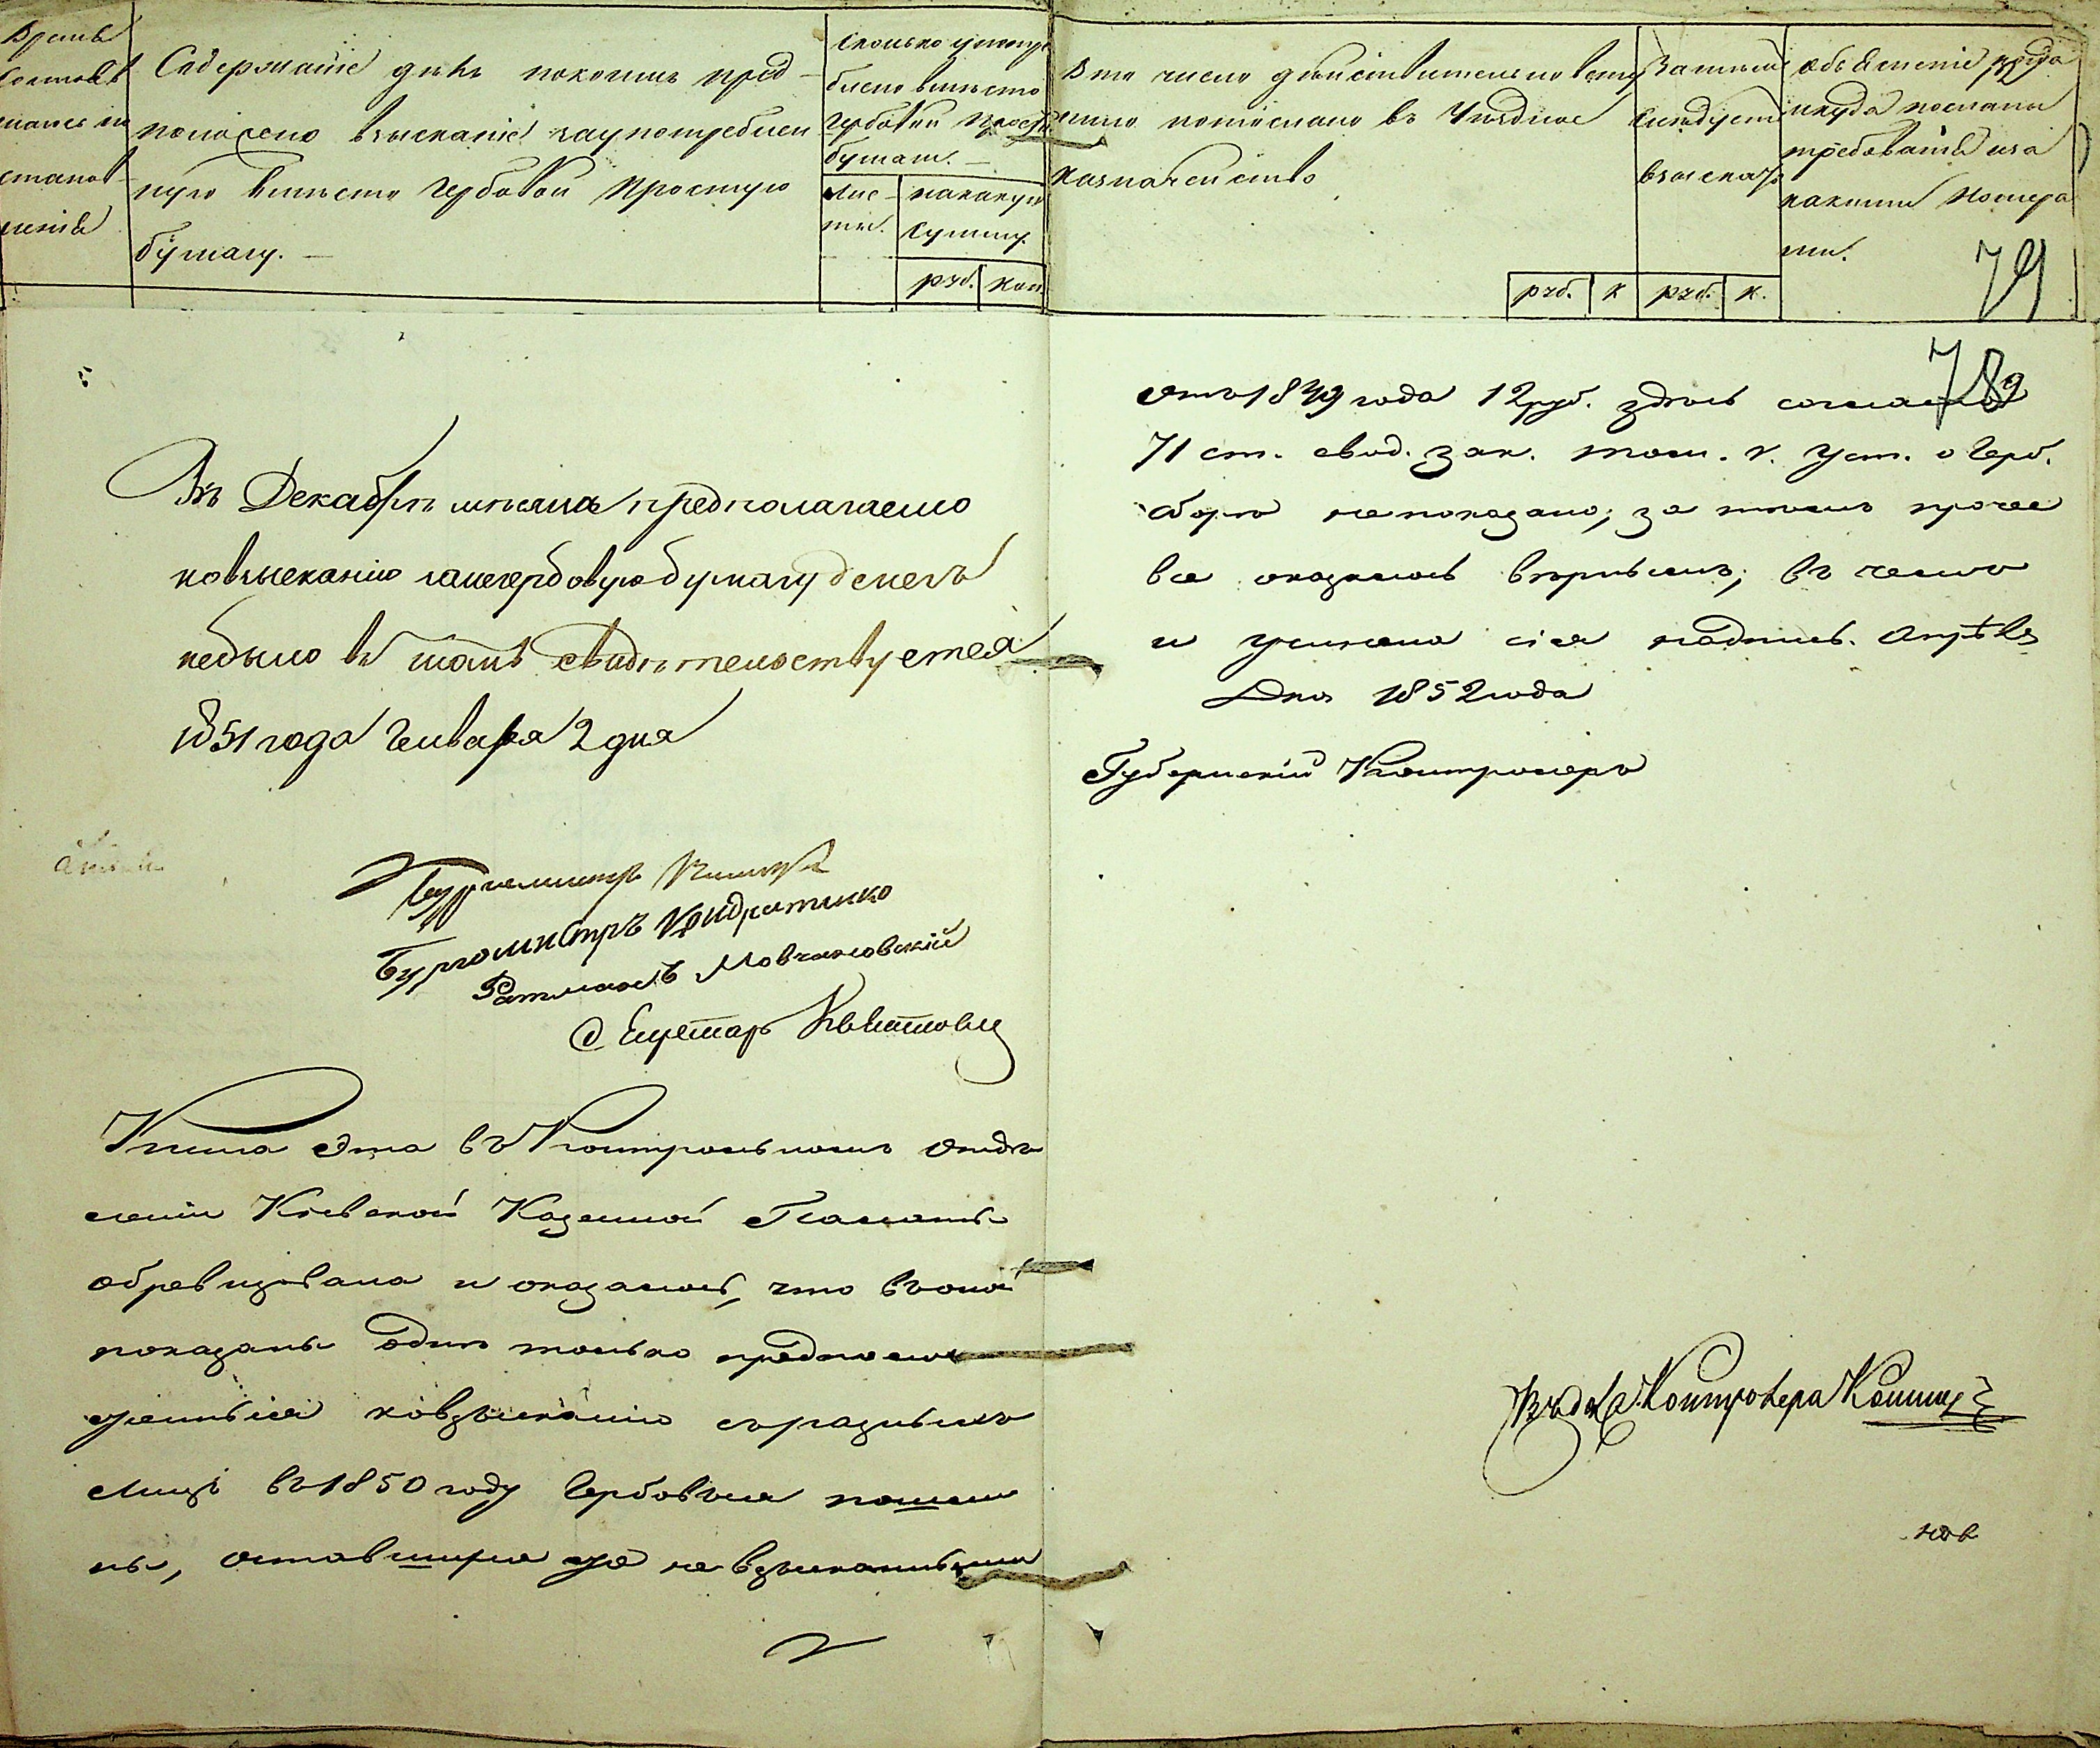 Время
Состоя
становле
ния
Содержаніе дѣлъ покоимъ пред-
положено взысканіе заупотреблен
ную вмѣсто Гербовой Простую
бумагу. —
Сколько употре
блено вмѣсто
Гербовой Прост
бумаги. —
Лис-
ты.
накакую
Сумму.
руб. Коп.
Вто число дѣйствительно
и отослано въ Уѣздное
Казначейство
руб. К
Затѣмъ
Слѣдуетъ
взыскать
руб. К.
Объясненіе
и куда посланы
требованія иза
какими Номера
ми.
79
78
Въ Декабрѣ мѣсяцѣ предполагаемо
ковзысканію занегербовую бумагу денегъ
небыло въ томъ свидѣтельствуется
1851 года Генваря 2 дня
Бургомистръ
Бургомистръ Кондратенко
Ратманъ Мовчановскій
Секретарь
Книга эта въ Контрольномъ Отдѣ
леніи Кіевской Казенной Палаты
обревизована и оказалось, что въоной
показаны одни только предполо
женныя ковзысканію съразныхъ
Лицъ въ1850 году Гербовыя пошли
ны, оставшіяся же не взысканными
отъ1849 года 12 руб. здѣсь согласно
71 ст. свод. зак. том. V. Уст. о Герб.
сборѣ непоказано; за тѣмъ прочее
все оказалось вѣрнымъ; въ чемъ
и учинена сія надпись. Апрѣля
Дня 1852 года
Губернскій Контролеръ
Контролера